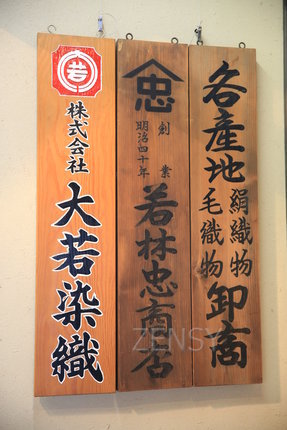 各産地
絹織物
毛織物
卸商
忠
創業
明治四十年
若林忠商店
若
株式会社
大若染織
ZENSY